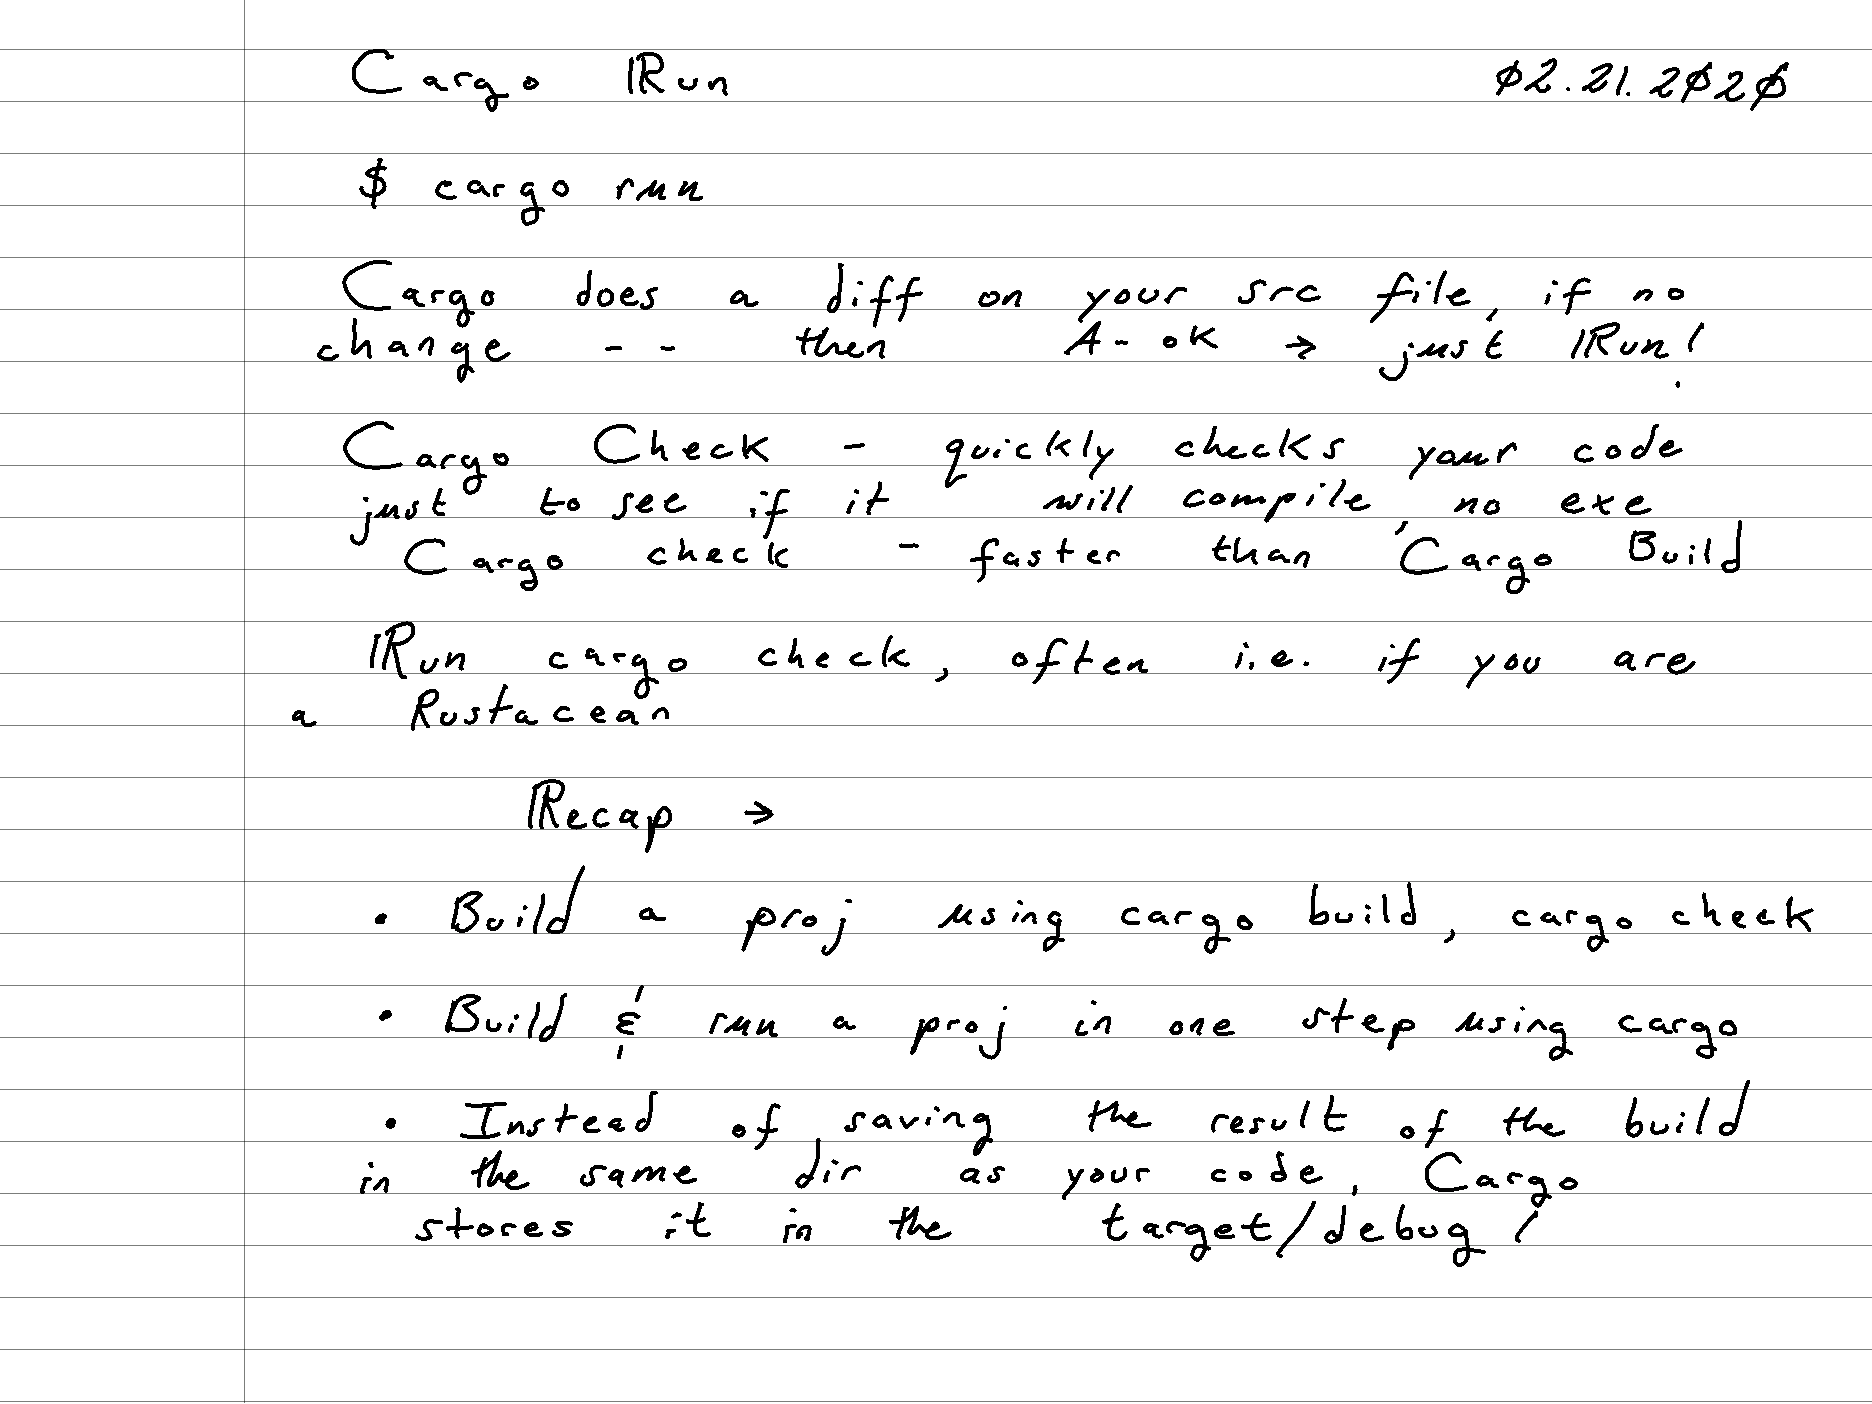 Cargo Run 02.21.2020
$ cargo run
Cargo does a diff on your src file, if no
change -- then A-ok → just Run!
Cargo Check - quickly checks your code
just to see if it will compile, no exe
Cargo check - faster than Cargo Build
Run cargo check, often i.e. if you are
a Rustacean
Recap →
• Build a proj using cargo build, cargo check
• Build & run a proj in one step using cargo
• Instead of saving the result of the build
in the same dir as your code, Cargo
stores it in the target/debug/